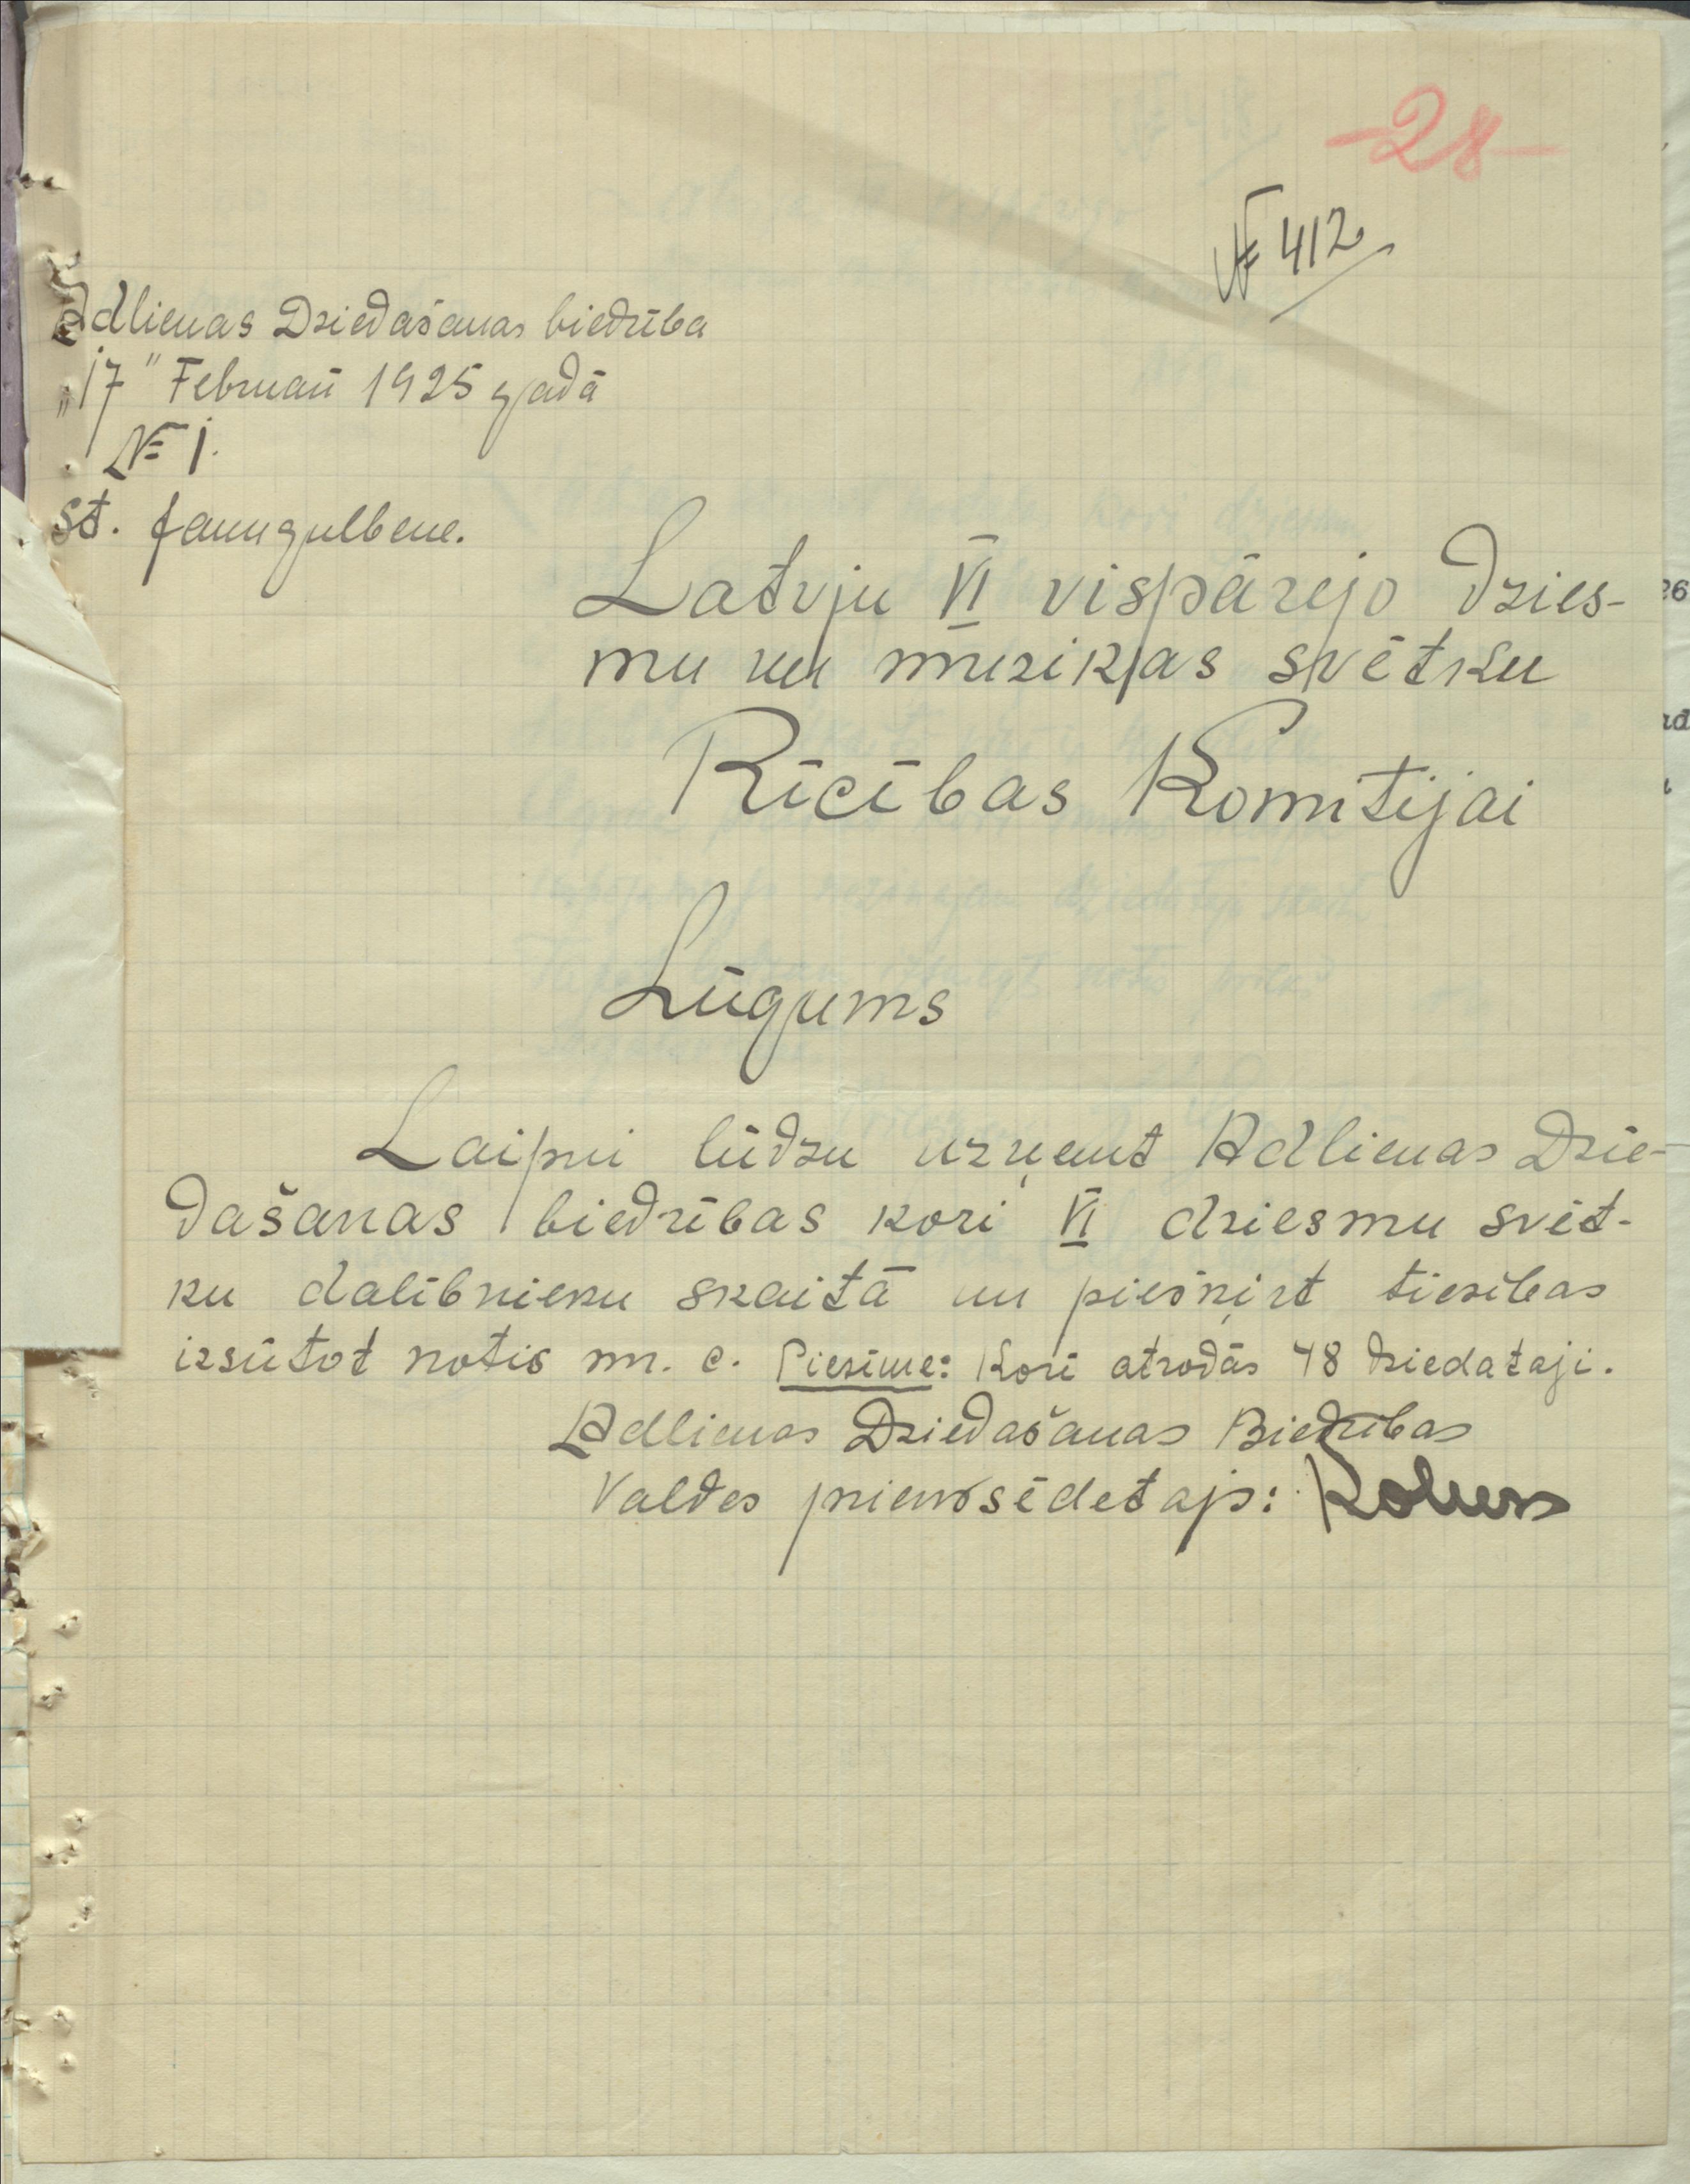 -28-
№ 412
Adlienas Dziedašanas biedrība
„17" Februarī 1925 gadā
№ 1.
St. Jaungulbene.
Latvju VI vispārejo Dzies-
mu un mūzikas svētku
Rīcības Komitijai
Lūgums
Laipni lūdzu uzņemt Adlienas Dzie-
dašanas biedrības kori VI dziesmu svēt-
ku dalībnieku skaitā un piešķirt tiesības
izsūtot notis nn. c. Piezīme: Korī atrodās 48 Dziedataji.
Adlienas Dziedašanas Biedrības
Valdes prieksēdetajs: